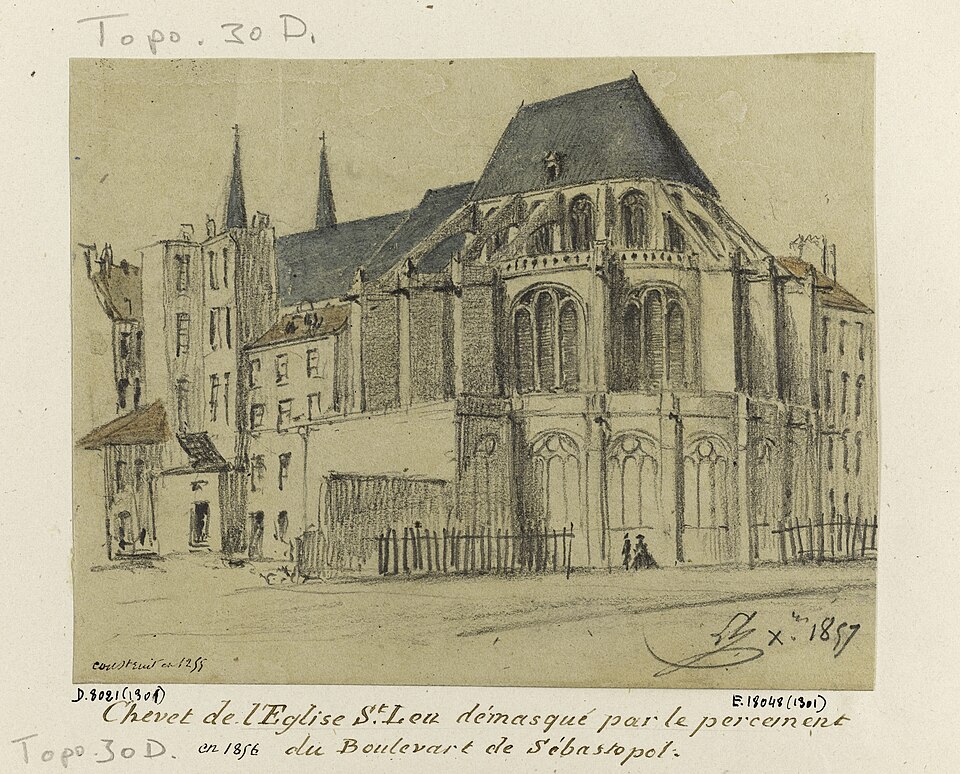 Topo. 30 D.
X.bre 1857
construit en 1255
D.8021(1301)
E.18048(1301)
Chevet de l'Eglise St. Leu démasqué par le percement
Topo. 30 D. en 1856 du Boulevart de Sébastopol.